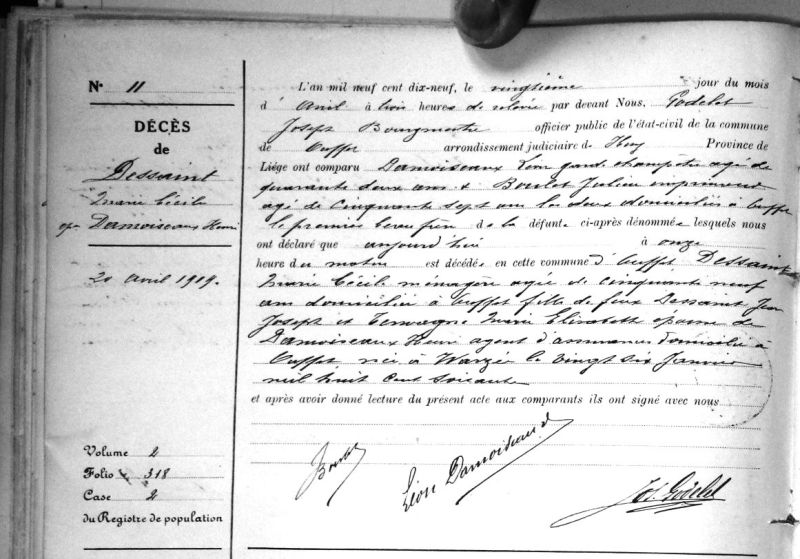 N° 11
DÉCÈS
de
Dessaint
Marie Cécile
ép. Damoiseaux Henri
20 avril 1919.
Volume 2
Folio 318
Case 2
du Registre de population
L'an mil neuf cent dix-neuf, le vingtième jour du mois
d' Avril à trois heures de relevée par devant Nous, Godelet
Joseph Bourgmestre officier public de l'état-civil de la commune
de Ouffet arrondissement judiciaire d Huy Province de
Liége ont comparu Damoiseaux Léon garde champêtre agé de
quarante deux ans & Boulet Julien
agé de cinquante sept ans les deux domiciliés à Ouffet
le premier beau frère de la défunte ci-après dénommée lesquels nous
ont déclaré que aujourd'hui à onze
heure du matin est décédée en cette commune d' Ouffet Dessaint
Marie Cécile ménagère agée de cinquante neuf
ans domiciliée à Ouffet fille de feux Dessaint Jean
Joseph et Marie Elisabeth épouse de
Damoiseaux Henri agent d'assurances domicilié à
Ouffet née à Warzée le vingt six Janvier
mil huit cent soixante
et après avoir donné lecture du présent acte aux comparants ils ont signé avec nous
Boulet
Léon Damoiseaux
Jos. Godelet